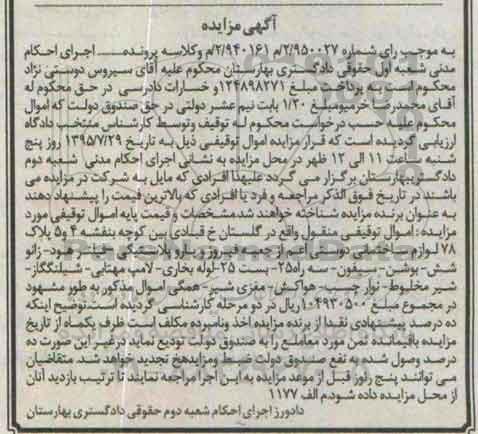 آگهی مزایده
به موجب رای شماره ۲/۹۵۰۰۲۷/م ۲/۹۴۰۱۶۱/م وکلاسه پرونده.... اجرای احکام
مدنی شعبه اول حقوقی دادگستری بهارستان محکوم علیه آقای سیروس دوستی نژاد
محکوم است به پرداخت مبلغ ۱۲۴۸۹۸۲۷۱و خسارات دادرسی در حق محکوم له
آقای محمدرضا خرمیومبلغ ۱/۲۰ بابت نیم عشر دولتی در حق صندوق دولت که اموال
محکوم علیه حسب درخواست محکوم له توقیف وتوسط کارشناس منتخب دادگاه
ارزیابی گردیده است که قرار مزایده اموال توقیفی ذیل به تاریخ ۱۳۹۵/۷/۲۹ روز پنج
شنبه ساعت ۱۱ الی ۱۲ ظهر در محل مزایده به نشانی اجرای احکام مدنی شعبه دوم
دادگستریبهارستان برگزار می گردد علیهذا افرادی که مایل به شرکت در مزایده می
باشند در تاریخ فوق الذکر مراجعه و فرد یا افرادی که بالاترین قیمت را پیشنهاد دهند
به عنوان برنده مزایده شناخته خواهند شد مشخصات و قیمت پایه اموال توقیفی مورد
مزایده: اموال توقیفی منقول واقع در گلستان خ قبادی بین کوچه بنفشه ۴ و۵ پلاک
۷۸ لوازم ساختمانی دوستی اعم از چسب فیروز و یارو پلاستیکی - فیلتر هود- زانو
شش- بوشن- سیفون- سه راه۲۵- بست ۲۵-لوله بخاری- لامپ مهتابی- شیلنگگاز-
شیر مخلوط- نوار چسب- هواکش- مغزی شیر- همگی اموال مذکور به طور مشهود
در مجموع مبلغ ۱۰۴۹۳۰۵۰۰ ریال در دو مرحله کارشناسی گردیده است.توضیح اینکه
ده درصد پیشنهادی نقدا از برنده مزایده اخذ ونامبرده مکلف است ظرف یکماه از تاریخ
مزایده باقیمانده ثمن مورد معاملع را به صندوق دولت تودیع نماید درغیر این صورت ده
درصد وصول شده به نفع صندوق دولت ضبط ومزایدهخ تجدید خواهد شد. متقاضیان
می توانند پنج رئوز قبل از موعد مزایده به این اجرا مراجعه نمایند تا ترتیب بازدید آنان
از محل مزایده داده شود.م الف ۱۱۷۷
دادورز اجرای احکام شعبه دوم حقوقی دادگستری بهارستان